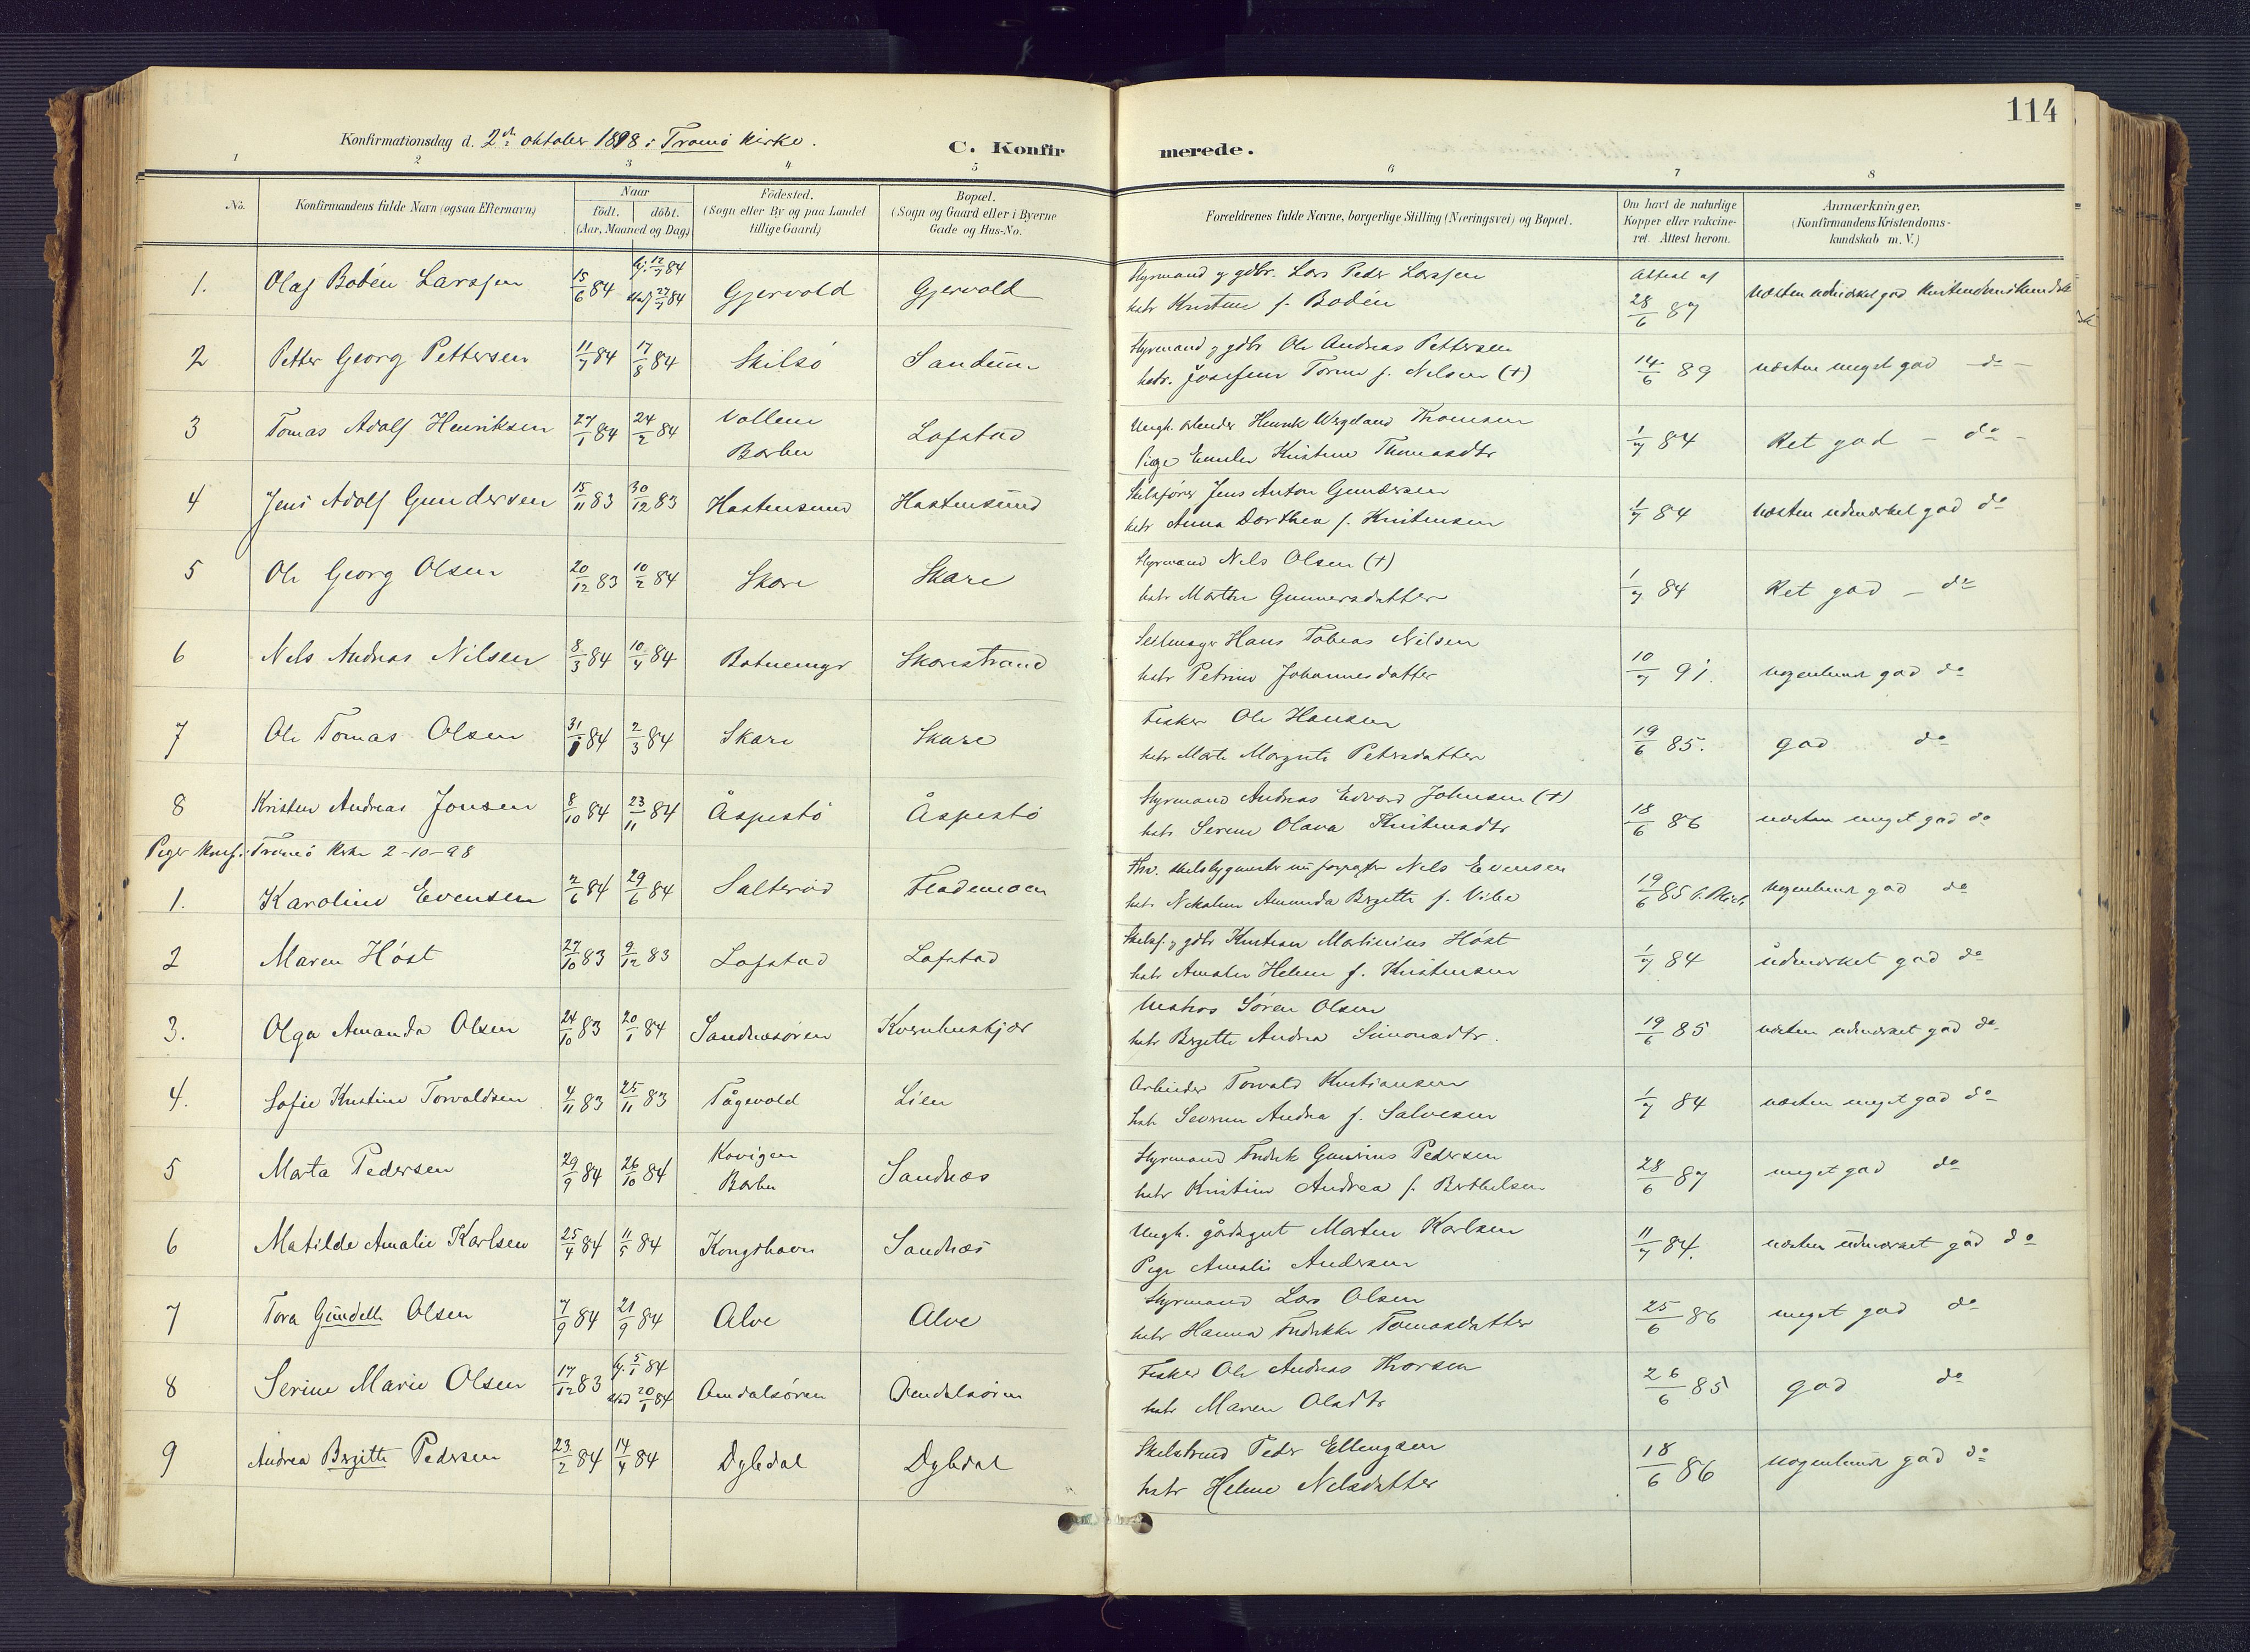 114
Konfirmationsdag d. 2den oktober 1898 i Tromö kirke.
C. Konfirmerede.
1 2 3 4 5 6 7 8
No.
Konfirmandens fulde Navn (ogsaa Efternavn)
Naar
födt. döbt.
(Aar, Maaned og Dag)
Födested.
(Sogn eller By og paa Landet
tillige Gaard)
Bopæl.
(Sogn og Gaard eller i Byerne
Gade og Hus-No.
Forældrenes fulde Navne, borgerlige Stilling (Næringsvei) og Bopæl.
Om havt de naturlige
Kopper eller vakcine-
ret. Attest herom.
Anmærkninger.
(Konfirmandens Kristendoms-
kundskab m. V.)
1. Olaf Bodén Larssen 15/6 84 hj. 12/7 84 stad. 27/7 84 Gjervold Gjervold
Styrmand og gdbr. Lars Peder Larssen
hstr Kristine f. Bodén
Attest af 28/6 87
næsten udmærket god kristendomskundskab
2 Petter Georg Pettersen 11/7 84 17/8 84 Skilsö Sandum
Styrmand og gdbr Ole Andreas Pettersen
hstr. Josefine Torine f. Nilsen (+)
14/6 89 næsten meget god - do -
3 Tomas Adolf Henriksen 27/1 84 24/2 84 Vollene Barbu Lofstad
Ungk. arbeider Henrik Wergeland Thomsen
Pige Emilie Kristine Thomasdtr
1/7 84 Ret god - do -
4 Jens Adolf Gundersen 15/11 83 30/12 83 Hastensund Hastensund
Skibsfører Jens Anton Gundersen
hstr Anna Dorthea f. Kristensen
1/7 84 næsten udmærket god do
5 Ole Georg Olsen 20/12 83 10/2 84 Skare Skare
Styrmand Nils Olsen (+)
hstr Marthe Gunnersdatter
1/7 84 Ret god - do
6 Nils Andreas Nilsen 8/3 84 10/4 84 Botnemyr Skarestrand
Seilmager Hans Tobias Nilsen
hstr Petrine Johannesdatter
10/7 91. nogenlunde god do
7 Ole Tomas Olsen 31/1 84 2/3 84 Skare Skare
Fisker Ole Hansen
hstr Marte Margrete Petersdatter
19/6 85. god do
8 Kristen Andreas Jonsen 8/10 84 23/11 84 Åspestö Åspestö
Styrmand Andreas Edvard Johnsen (+)
hstr Serine Olava Kristensdtr
18/6 86 næsten meget god do
Piger konf. i Tromö kirke 2-10-98
1. Karoline Evensen 2/6 84 29/6 84 Salteröd Flademoen
Fhv. skibsbygmester nu forpagter Nils Evensen
hstr Nikoline Amunda Birgitte f. Vibe
19/6 85 nogenlunde god do
2 Maren Höst 27/10 83 9/12 83 Lofstad Lofstad
Skibsf. og gdbr Kristian Martinius Höst
hstr Amalie Helene f. Kristensen
1/7 84 udmærket god do
3. Olga Amanda Olsen 24/10 83 20/1 84 Sandnæsören Kvernhuskjær
Matros Sören Olsen
hstr Birgitte Andrea Simonsdtr.
19/6 85 næsten udmærket god do
4. Sofie Kristine Torvaldsen 4/11 83 25/11 83 Tågevold Lien
Arbeider Torvald Kristiansen
hstr Severine Andrea f. Salvesen
1/7 84 næsten meget god do
5 Marta Pedersen 29/9 84 26/10 84 Kovigen Barbu Sandnæs
Styrmand Fredrik Gunerius Pedersen
hstr Kristine Andrea f. Berthelsen
28/6 87 meget god do
6 Matilde Amalie Karlsen 25/4 84 11/5 84 Kongshavn Sandnæs
Ungk. gårdsgut Martin Karlsen
Pige Amalie Andersen
11/7 84. næsten udmærket god do
7 Tora Gundelle Olsen 7/9 84 21/9 84 Alve Alve
Styrmand Lars Olsen
hstr Hanna Fredrikke Tomasdatter
25/6 86 meget god do
8 Serine Marie Olsen 17/12 83 hj. 5/1 84 stad 20/1 84 Omdalsören Omdalsören
Fisker Ole Andreas Thorsen
hstr Maren Olsdtr
26/6 85 god do
9 Andrea Birgitte Pedersen 23/2 84 14/4 84 Dybdal Dybdal
Skibstømd Peder Ellingsen
hstr Helene Nilsdatter
18/6 86 nogenlunde god do